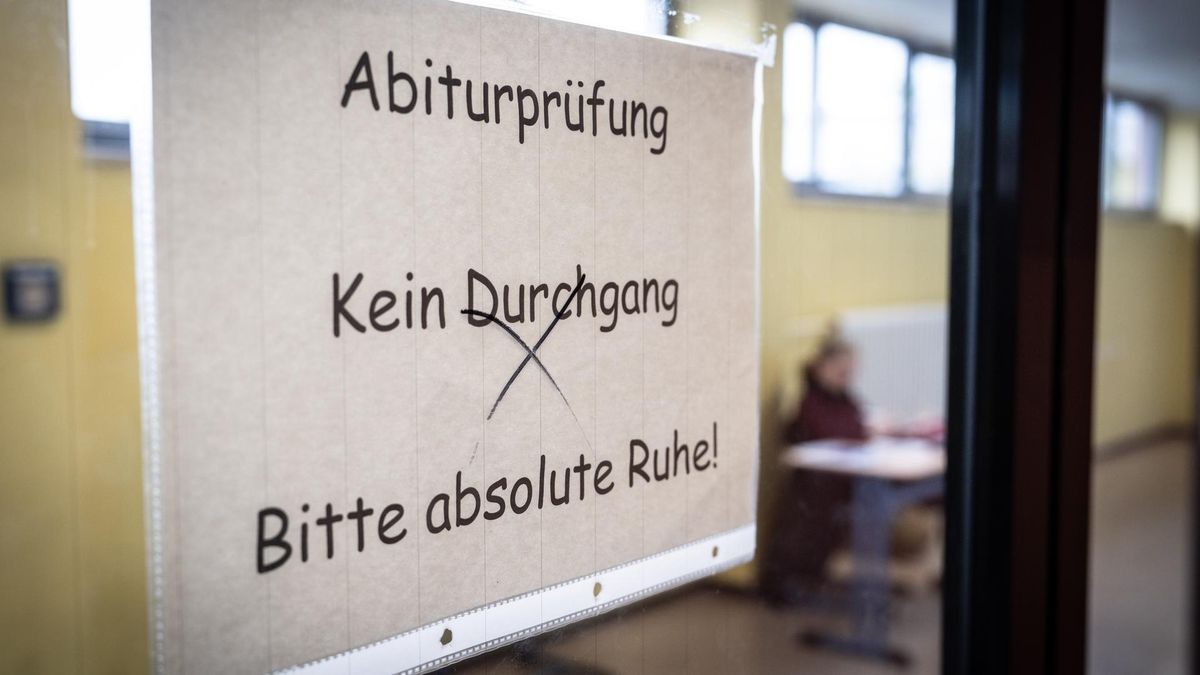 Abiturprüfung
Kein Durchgang
Bitte absolute Ruhe!